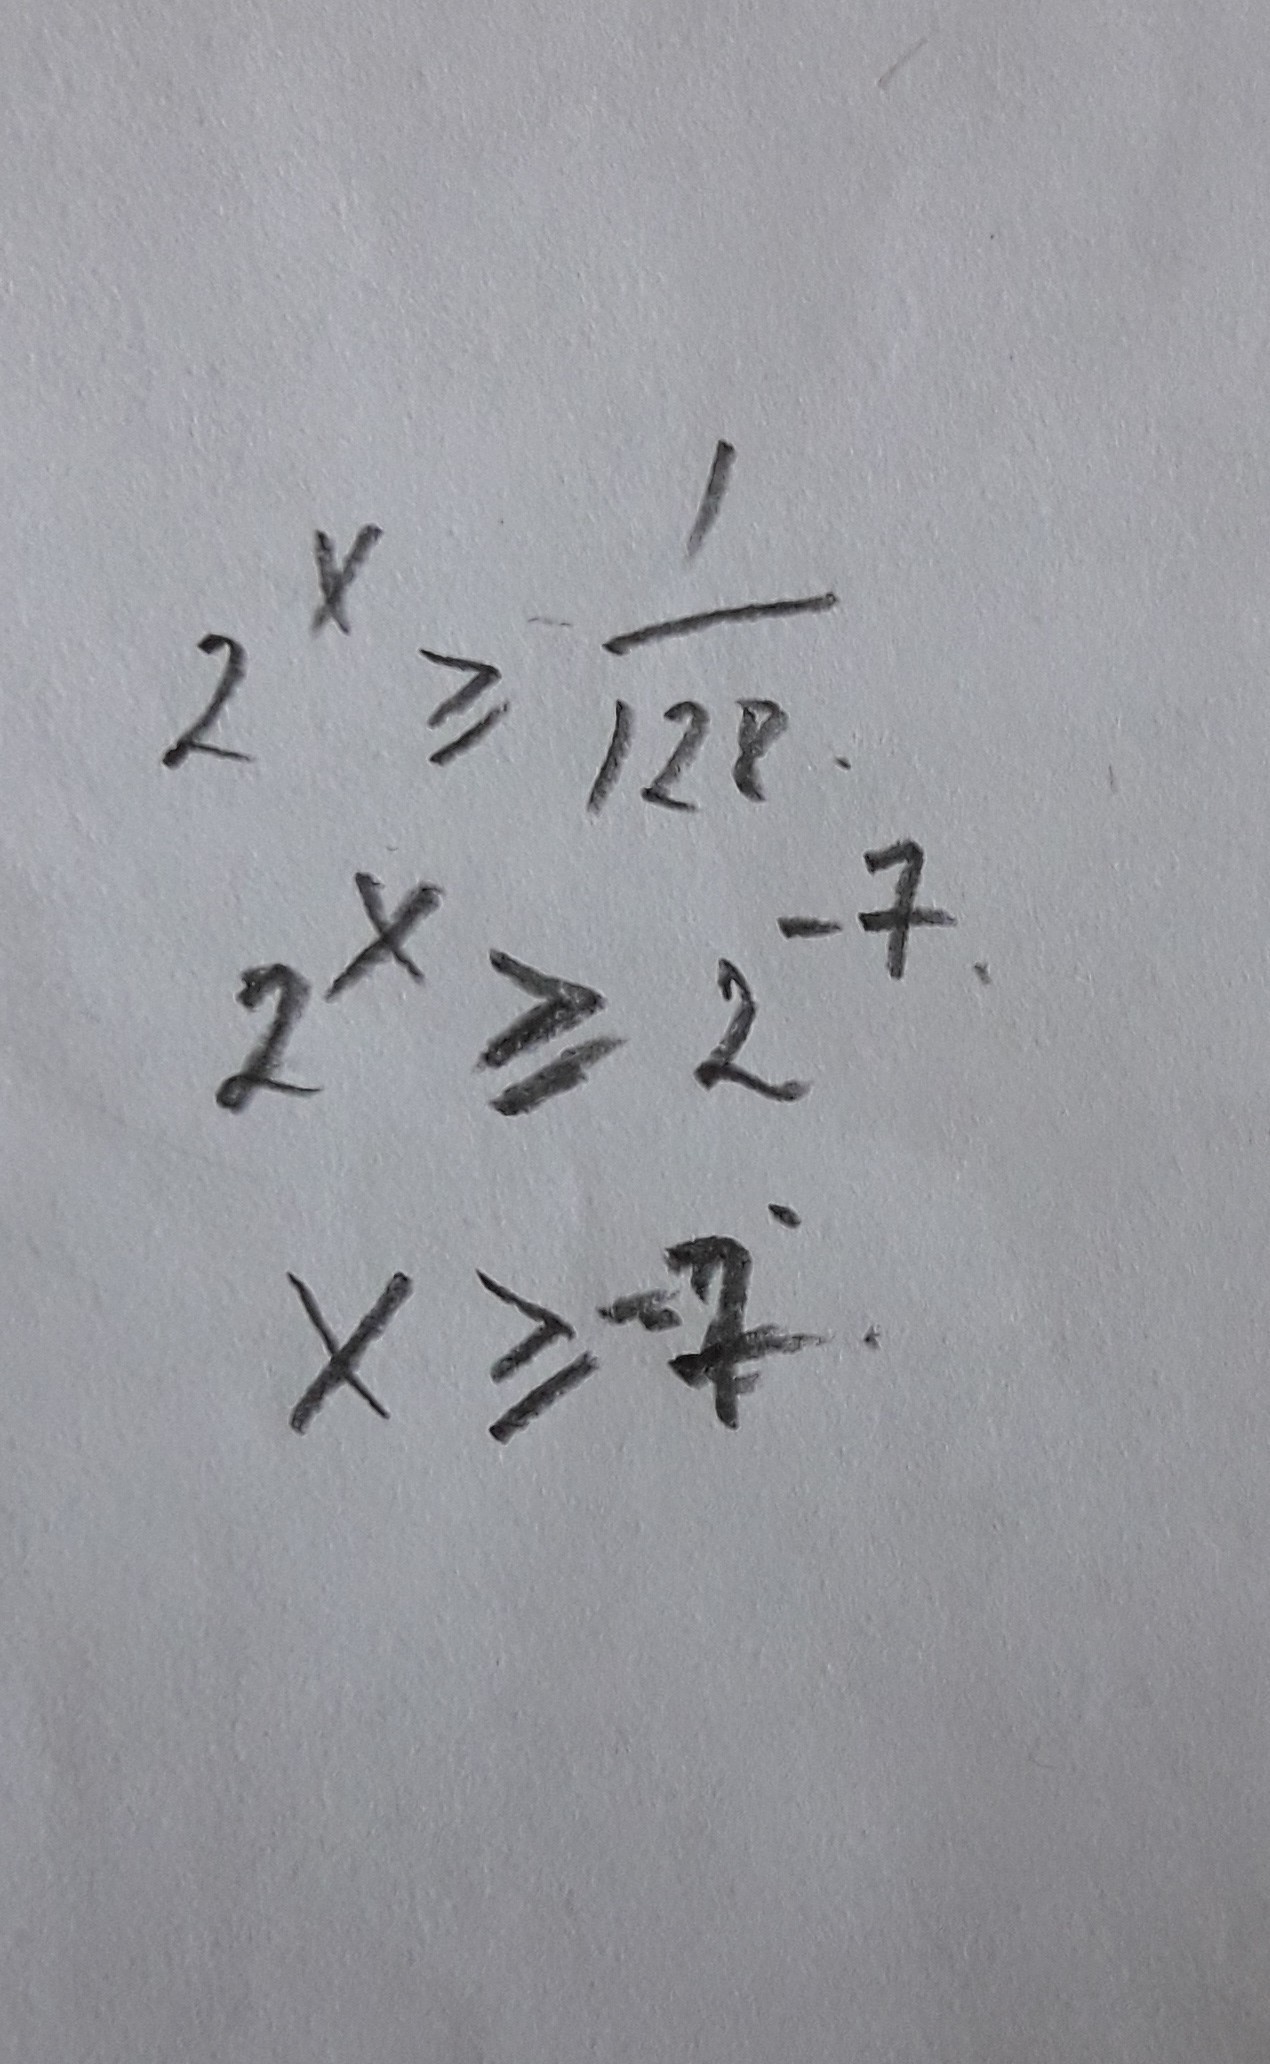 2^x ≥ 1/128.
2^x ≥ 2^-7.
x ≥ -7.